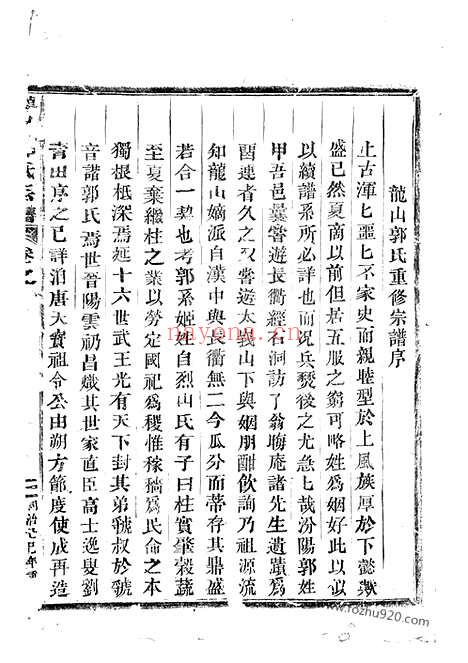 龍山郭氏重修宗譜序
上古渾匕噩匕不家史而親睦型於上風族厚於下懿歟
盛已然夏商以前但居五服之窮可略姓爲姻好此以似
以續譜系所必詳也而况兵燹後之尤急匕哉汾陽郭姓
甲吾邑曩嘗遊長衢經石洞訪了翁晦庵諸先生遺蹟爲
畱連者久之又嘗遊太義山下與姻朋酣飲詢乃祖源流
知龍山嫡派自漢中與長衢無二今瓜分而蒂存其鼎盛
若合一契也考郭系姬姓自烈山氏有子曰柱實肇穀蔬
至夏棄纘柱之業以勞定國祀爲稷惟稼穡爲民命之本
獨根柢深焉延十六世武王光有天下封其弟虢叔於虢
音諧郭氏焉世晉陽雲礽昌熾其世家直臣高士逸叟劉
青田序之已詳洎唐天寶祖令公由朔方節度使成再造
氏宗譜 卷之
同治己巳年重
nayona.cn
www.fozhu920.com